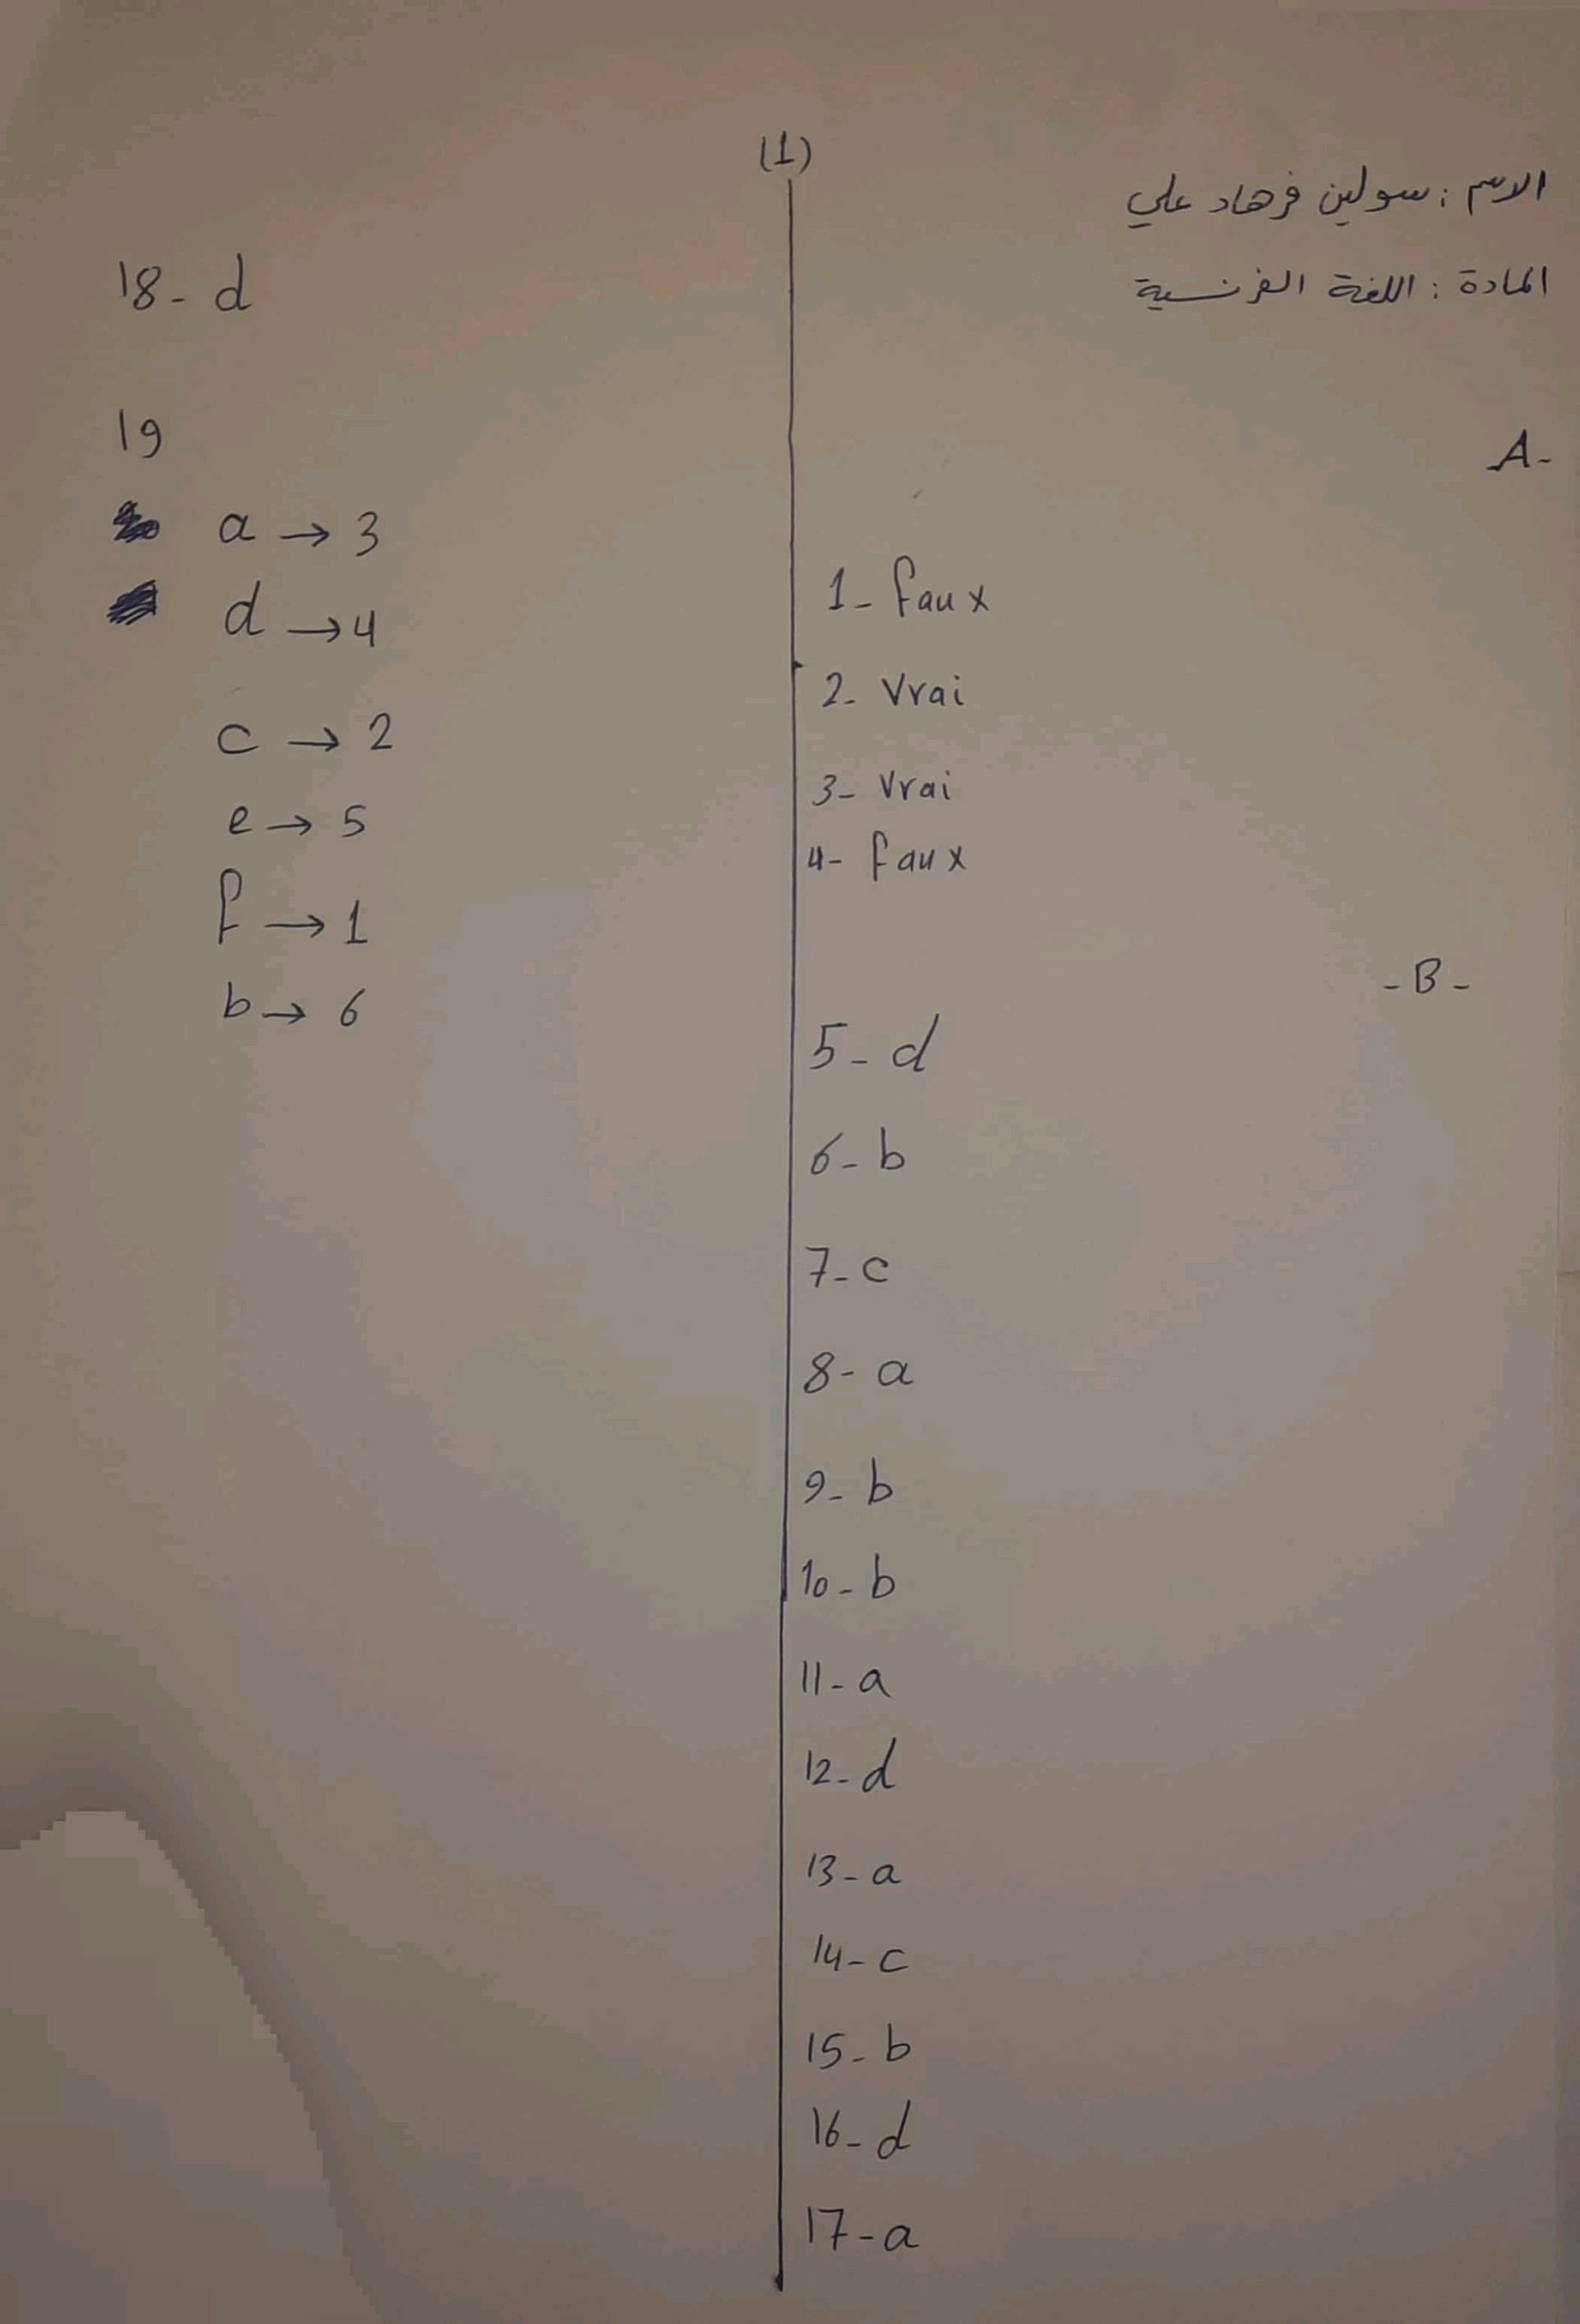 (1)
الاسم : سولين فرهاد علي
المادة : اللغة الفرنسية
A-
1- faux
2- Vrai
3- Vrai
4- faux
- B -
5- d
6- b
7- c
8- a
9- b
10- b
11- a
12- d
13- a
14- c
15- b
16- d
17- a
18- d
19
a → 3
d → 4
c → 2
e → 5
f → 1
b → 6